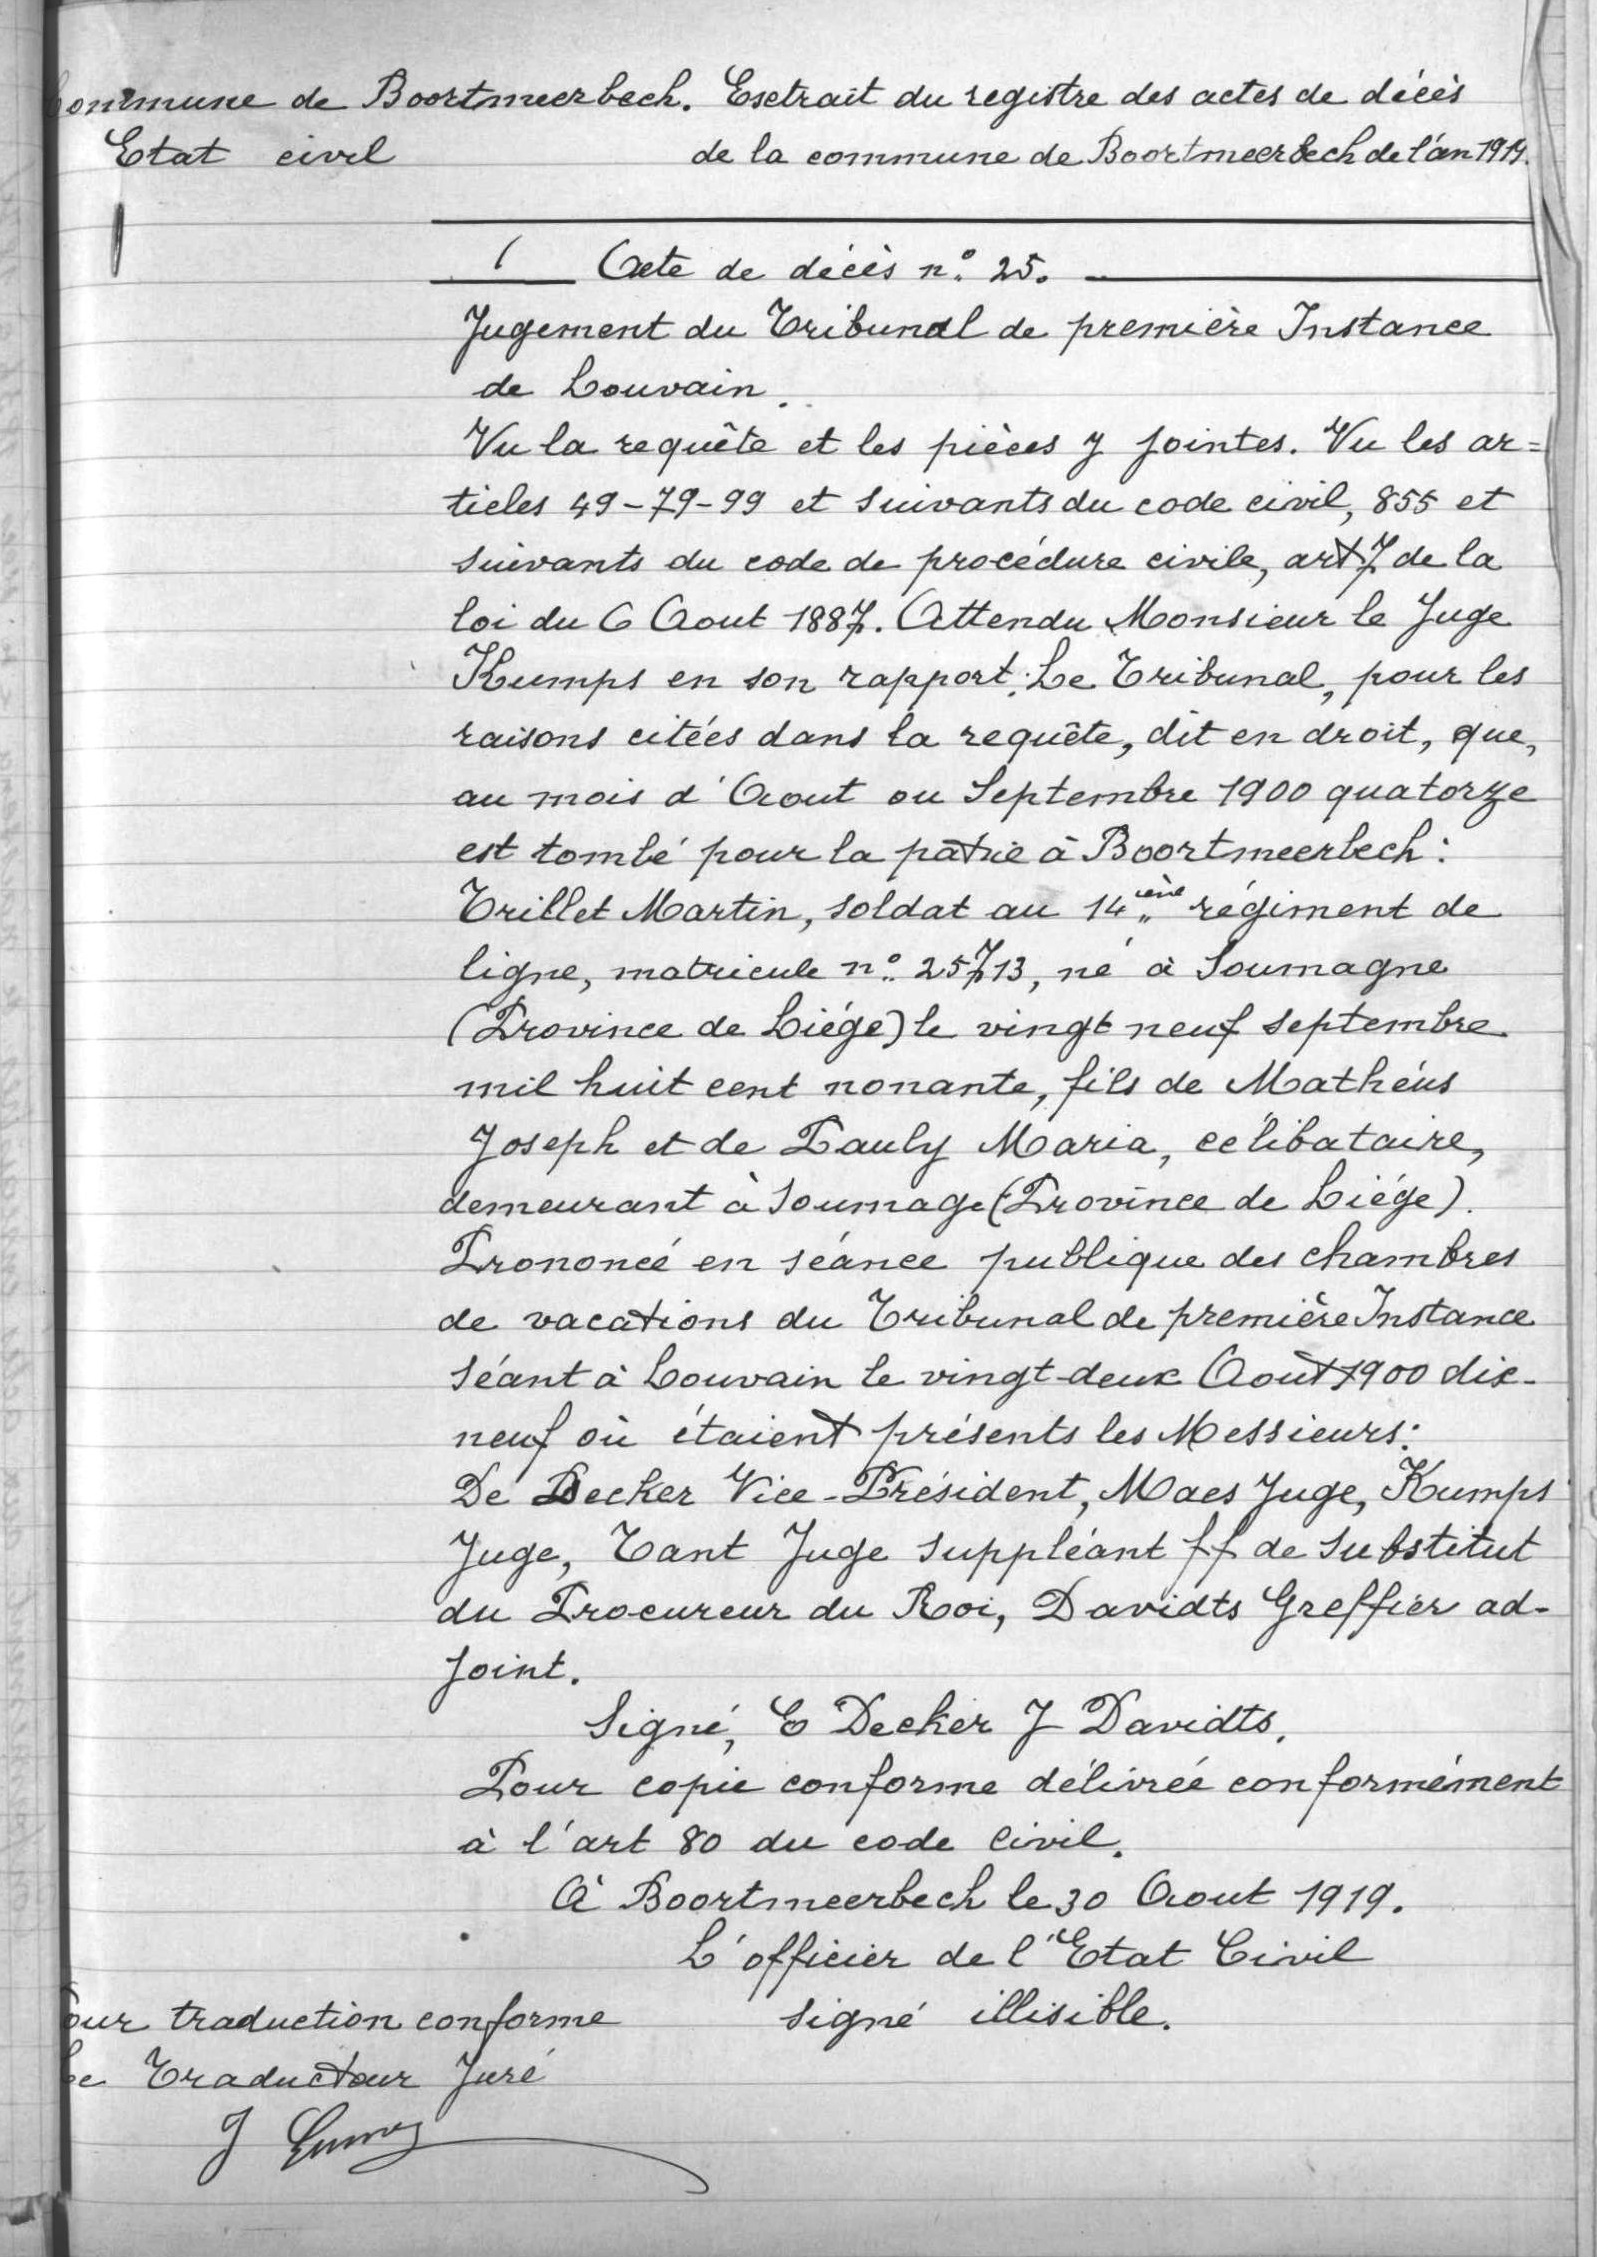 Commune de Boortmeerbech. Esctrait du registre des actes de décès
Etat civil de la commune de Boortmeerbech de l'an 1919.
Acte de décès n° 25.
Jugement du Tribunal de première Instance
de Louvain.
Vu la requête et les pièces y jointes. Vu les ar=
ticles 49-79-99 et suivants du code civil, 855 et
suivants du code de procédure civile, art 7 de la
loi du 6 Aout 1887. Attendu Monsieur le Juge
Kumps en son rapport; Le Tribunal, pour les
raisons citées dans la requête, dit en droit, que,
au mois d'Aout ou Septembre 1900 quatorze
est tombé pour la patrie à Boortmeerbech:
Trillet Martin, soldat au 14ième régiment de
ligne, matricule n° 25713, né à Soumagne
(Province de Liége) le vingt neuf septembre
mil huit cent nonante, fils de Mathéus
Joseph et de Pauly Maria, célibataire,
demeurant à Soumage (Province de Liége).
Prononcé en séance publique des chambres
de vacations du Tribunal de première Instance
séant à Louvain le vingt-deux Août 1900 dix-
neuf où étaient présents les Messieurs:
De Decker Vice-Président, Maes Juge, Kumps
Juge, Tant Juge suppléant ff de substitut
du Procureur du Roi, Davidts Greffier ad-
joint.
Signé, E Decker J Davidts.
Pour copie conforme délivrée conformément
à l'art 80 du code civil.
A Boortmeerbech le 30 Aout 1919.
L'officier de l'Etat Civil
signé illisible.
Pour traduction conforme
Le Traducteur Juré
J